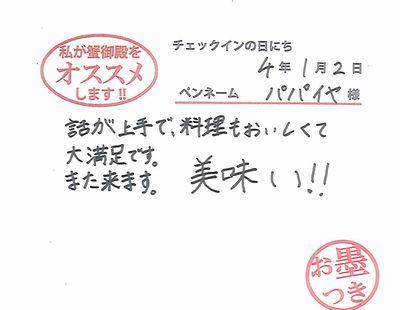 私が蟹御殿を
オススメ
します!!
チェックインの日にち
4年1月2日
ペンネーム パパイヤ 様
話が上手で、料理もおいしくて
大満足です。
また来ます。 美味い!!
お墨
つき